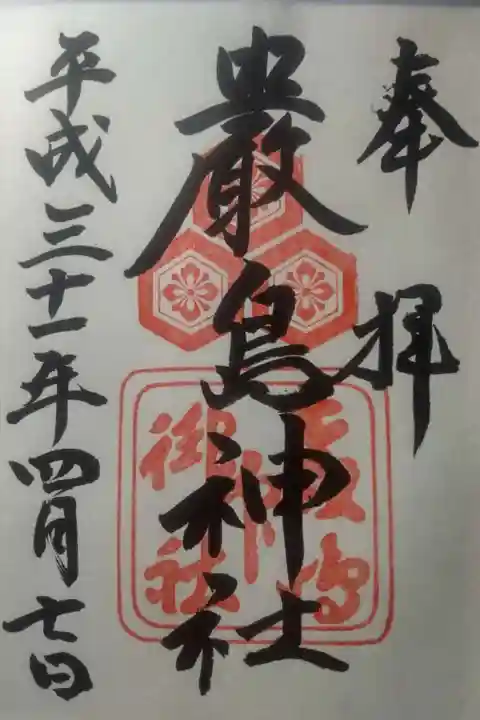 奉拝
厳島神社
平成三十一年四月七日